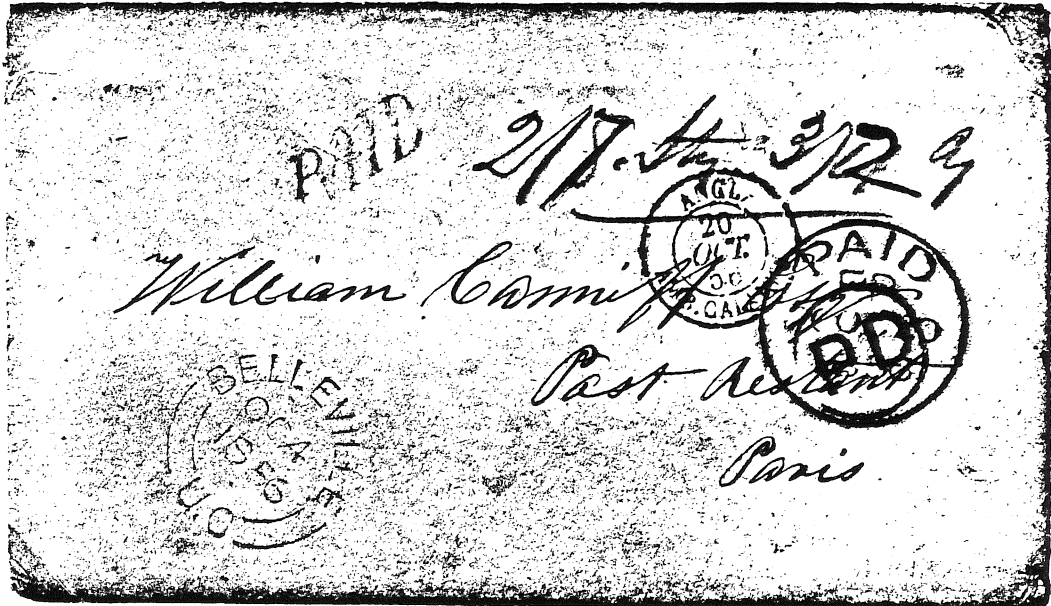 PAID
2/7. Stg 3/2 Cy
ANGL.
20
OCT.
CALAIS
PAID
PD
William Canniff
Past Restant
Paris
BELLEVILLE
OC 4
1856
U.C